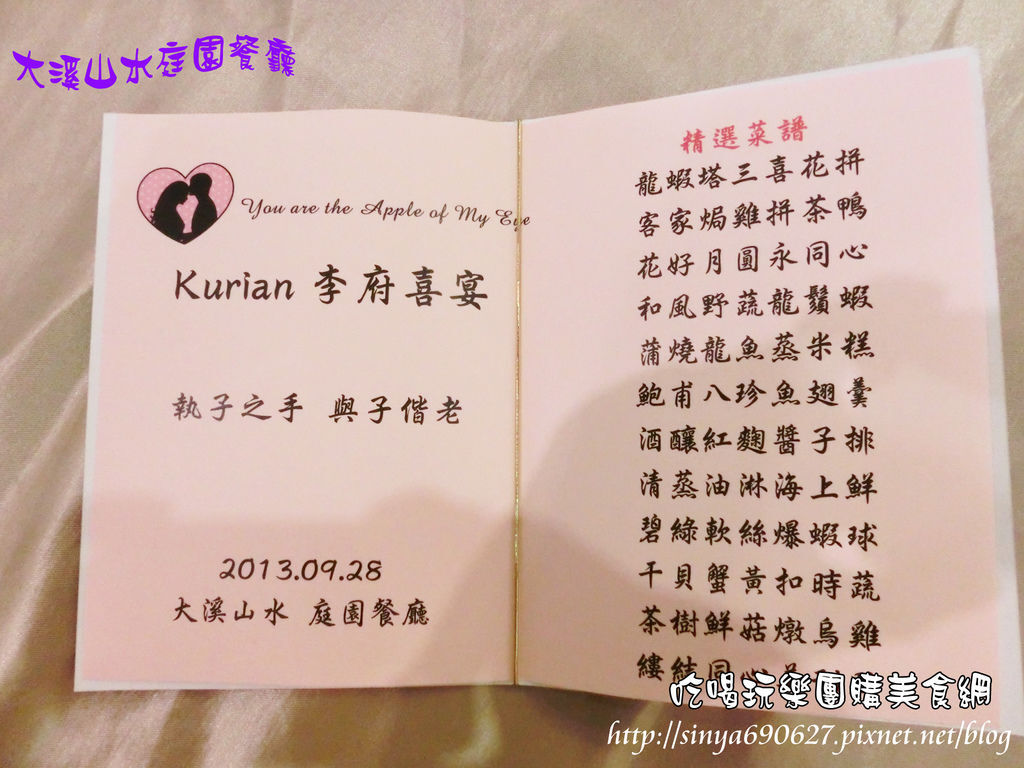 大溪山水庭園餐廳
You are the Apple of My Eye
Kurian 李府喜宴
執子之手 與子偕老
2013.09.28
大溪山水 庭園餐廳
精選菜譜
龍蝦塔三喜花拼
客家焗雞拼茶鴨
花好月圓永同心
和風野蔬龍鬚蝦
蒲燒龍魚蒸米糕
鮑甫八珍魚翅羹
酒釀紅麴醬子排
清蒸油淋海上鮮
碧綠軟絲爆蝦球
干貝蟹黃扣時蔬
茶樹鮮菇燉烏雞
縷結同心
吃喝玩樂團購美食網
http://sinya690627.pixnet.net/blog